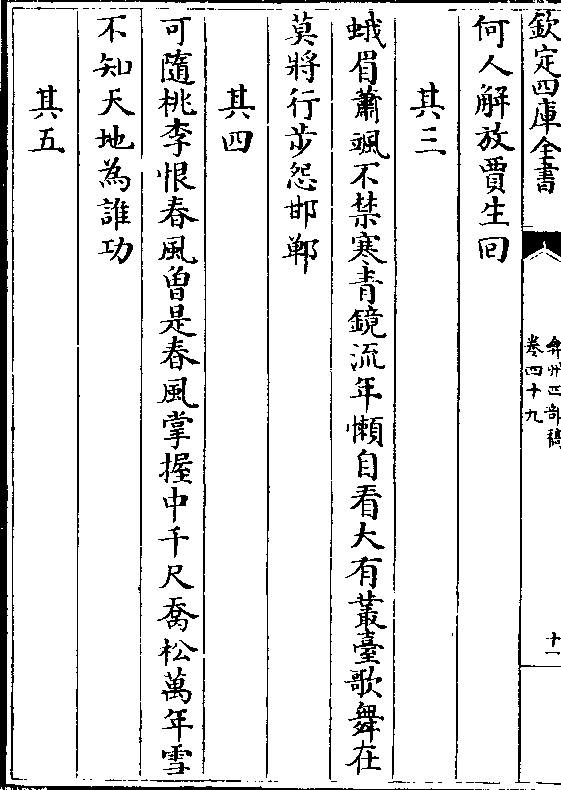 欽定四庫全書
弇州四部稿
卷四十九
十一
何人解放賈生回
其三
蛾眉蕭颯不禁寒青鏡流年懶自看大有叢臺歌舞在
莫將行步怨邯鄲
其四
可隨桃李恨春風曽是春風掌握中千尺喬松萬年雪
不知天地為誰功
其五